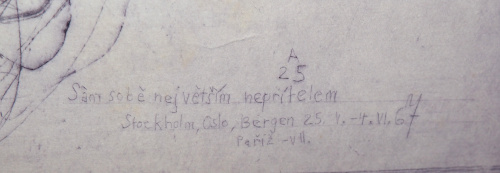 A
25
Sám sobě největším nepřítelem
Stockholm, Oslo, Bergen 25. V. -4. VI. 67
Paříž -VII.